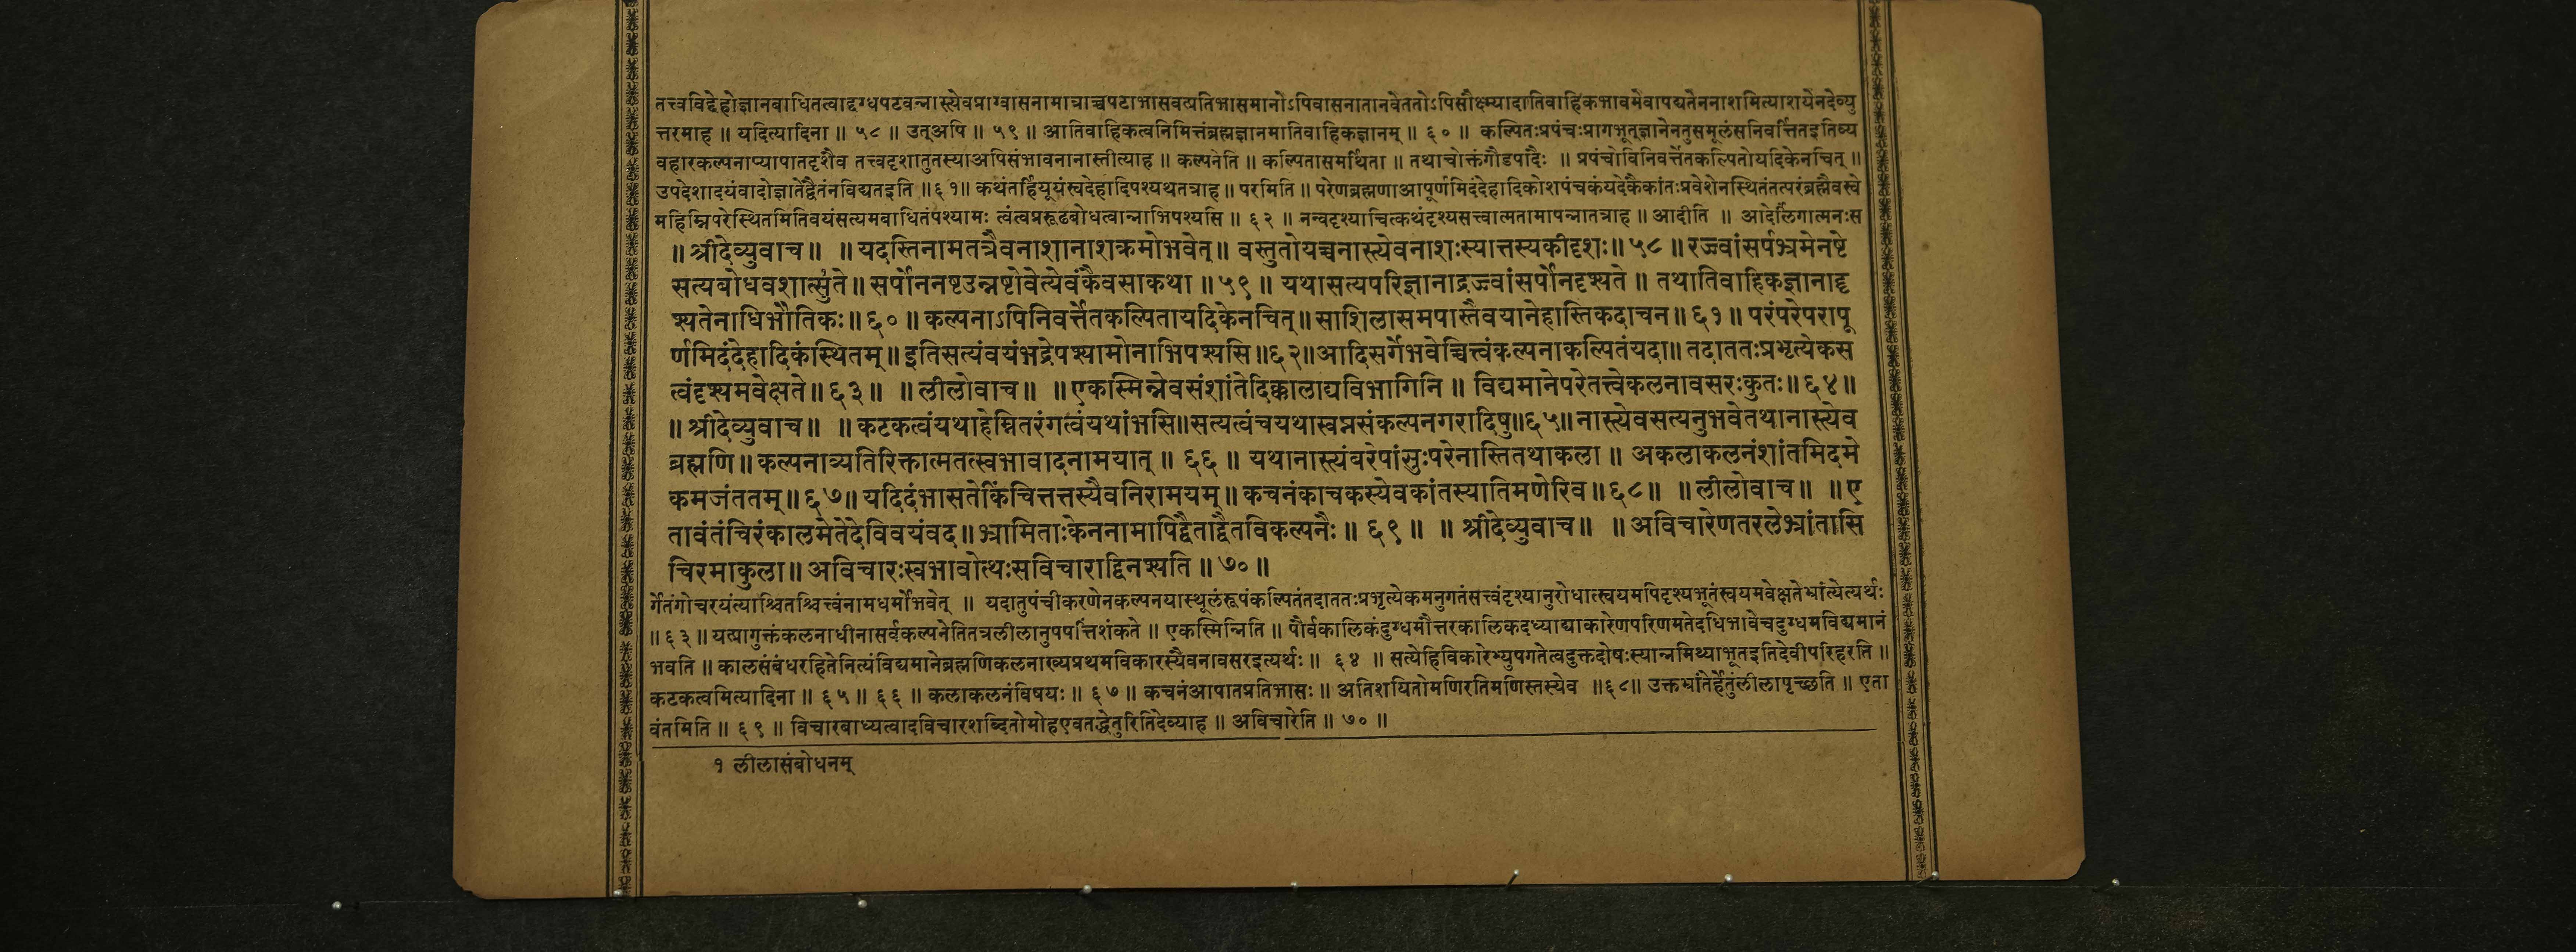 तत्त्वविद्देहोज्ञानबाधितत्वाद्दग्धपटवन्नास्त्येवप्राग्वासनामात्राच्चपटाभासवत्प्रतिभासमानोऽपिवासनातानवेततोऽपिसौक्ष्म्यादातिवाहिकभावमेवापद्यतेननाशमित्याशयेनदेव्यु
त्तरमाह ॥ यदित्यादिना ॥ ५८ ॥ उत्अपि ॥ ५९ ॥ आतिवाहिकत्वनिमित्तंब्रह्मज्ञानमातिवाहिकज्ञानम् ॥ ६० ॥ कल्पितःप्रपंचःप्रागभूत्ज्ञानेनतुसमूलंसनिवर्त्तितइतिव्य
वहारकल्पनाप्यापातदृशैव तत्त्वदृशातुतस्याअपिसंभावनानास्तीत्याह ॥ कल्पनेति ॥ कल्पितासमर्थिता ॥ तथाचोक्तंगौडपादैः ॥ प्रपंचोविनिवर्त्तेतकल्पितोयदिकेनचित् ॥
उपदेशादयंवादोज्ञातेद्वैतंनविद्यतइति ॥६१॥ कथंतर्हियूयंस्वदेहादिपश्यथतत्राह ॥ परमिति ॥ परेणब्रह्मणाआपूर्णमिदंदेहादिकोशपंचकंयदेकैकांतःप्रवेशेनस्थितंतत्परंब्रह्मैवस्वे
महिम्निपरेस्थितमितिवयंसत्यमबाधितंपश्यामः त्वंत्वप्ररूढबोधत्वान्नाभिपश्यसि ॥ ६२ ॥ नन्वदृश्याचित्कथंदृश्यसत्त्वात्मतामापन्नातत्राह ॥ आदीति ॥ आदेर्लिंगात्मनःस
॥ श्रीदेव्युवाच ॥ ॥ यदस्तिनामतत्रैवनाशानाशक्रमोभवेत् ॥ वस्तुतोयच्चनास्त्येवनाशःस्यात्तस्यकीदृशः ॥ ५८ ॥ रज्ज्वांसर्पभ्रमेनष्टे
सत्यबोधवशात्सुते ॥ सर्पोननष्टउन्नष्टोवेत्येवंकैवसाकथा ॥ ५९ ॥ यथासत्यपरिज्ञानाद्रज्ज्वांसर्पोनदृश्यते ॥ तथातिवाहिकज्ञानाद्दृ
श्यतेनाधिभौतिकः ॥ ६० ॥ कल्पनाऽपिनिवर्त्तेतकल्पितायदिकेनचित् ॥ साशिलासमपास्तैवयानेहास्तिकदाचन ॥ ६१ ॥ परंपरेपरापू
र्णमिदंदेहादिकंस्थितम् ॥ इतिसत्यंवयंभद्रेपश्यामोनाभिपश्यसि ॥६२॥ आदिसर्गेभवेच्चित्त्वंकल्पनाकल्पितंयदा ॥ तदाततःप्रभृत्येकस
त्वंदृश्यमवेक्षते ॥ ६३ ॥ ॥ लीलोवाच ॥ ॥ एकस्मिन्नेवसंशांतेदिक्कालाद्यविभागिनि ॥ विद्यमानेपरेतत्त्वेकलनावसरःकुतः ॥ ६४ ॥
॥ श्रीदेव्युवाच ॥ ॥ कटकत्वंयथाहेम्नितरंगत्वंयथांभसि ॥ सत्यत्वंचयथास्वप्नसंकल्पनगरादिषु ॥६५॥ नास्त्येवसत्यनुभवेतथानास्त्येव
ब्रह्मणि ॥ कल्पनाव्यतिरिक्तात्मतत्स्वभावादनामयात् ॥ ६६ ॥ यथानास्त्यंबरेपांसुःपरेनास्तितथाकला ॥ अकलाकलनंशांतमिदमे
कमजंततम् ॥ ६७ ॥ यदिदंभासतेकिंचित्तत्तस्यैवनिरामयम् ॥ कचनंकाचकस्येवकांतस्यातिमणेरिव ॥ ६८ ॥ ॥ लीलोवाच ॥ ॥ ए
तावंतंचिरंकालमेतेदेविवयंवद ॥ भ्रामिताःकेननामापिद्वैताद्वैतविकल्पनैः ॥ ६९ ॥ ॥ श्रीदेव्युवाच ॥ ॥ अविचारेणतरलेभ्रांतासि
चिरमाकुला ॥ अविचारःस्वभावोत्थःसविचाराद्विनश्यति ॥ ७० ॥
र्गेतंगोचरयंत्याश्चितश्चित्त्वंनामधर्मोभवेत् ॥ यदातुपंचीकरणेनकल्पनयास्थूलंरूपंकल्पितंतदाततःप्रभृत्येकमनुगतंसत्त्वंदृश्यानुरोधात्स्वयमपिदृश्यभूतंस्वयमवेक्षतेभ्रांत्येत्यर्थः
॥ ६३ ॥ यत्प्रागुक्तंकलनाधीनासर्वकल्पनेतितत्रलीलानुपपत्तिंशंकते ॥ एकस्मिन्निति ॥ पौर्वकालिकंदुग्धमौत्तरकालिकदध्याद्याकारेणपरिणमतेदधिभावेचदुग्धमविद्यमानं
भवति ॥ कालसंबंधरहितेनित्यंविद्यमानेब्रह्मणिकलनाख्यप्रथमविकारस्यैवनावसरइत्यर्थः ॥ ६४ ॥ सत्येहिविकारेभ्युपगतेत्वदुक्तदोषःस्यान्नमिथ्याभूतइतिदेवीपरिहरति ॥
कटकत्वमित्यादिना ॥ ६५ ॥ ६६ ॥ कलाकलनंविषयः ॥ ६७ ॥ कचनंआपातप्रतिभासः ॥ अतिशयितोमणिरतिमणिस्तस्येव ॥६८॥ उक्तभ्रांतेर्हेतुंलीलापृच्छति ॥ एता
वंतमिति ॥ ६९ ॥ विचारबाध्यत्वादविचारशब्दितोमोहएवतद्धेतुरितिदेव्याह ॥ अविचारेति ॥ ७० ॥
१ लीलासंबोधनम्